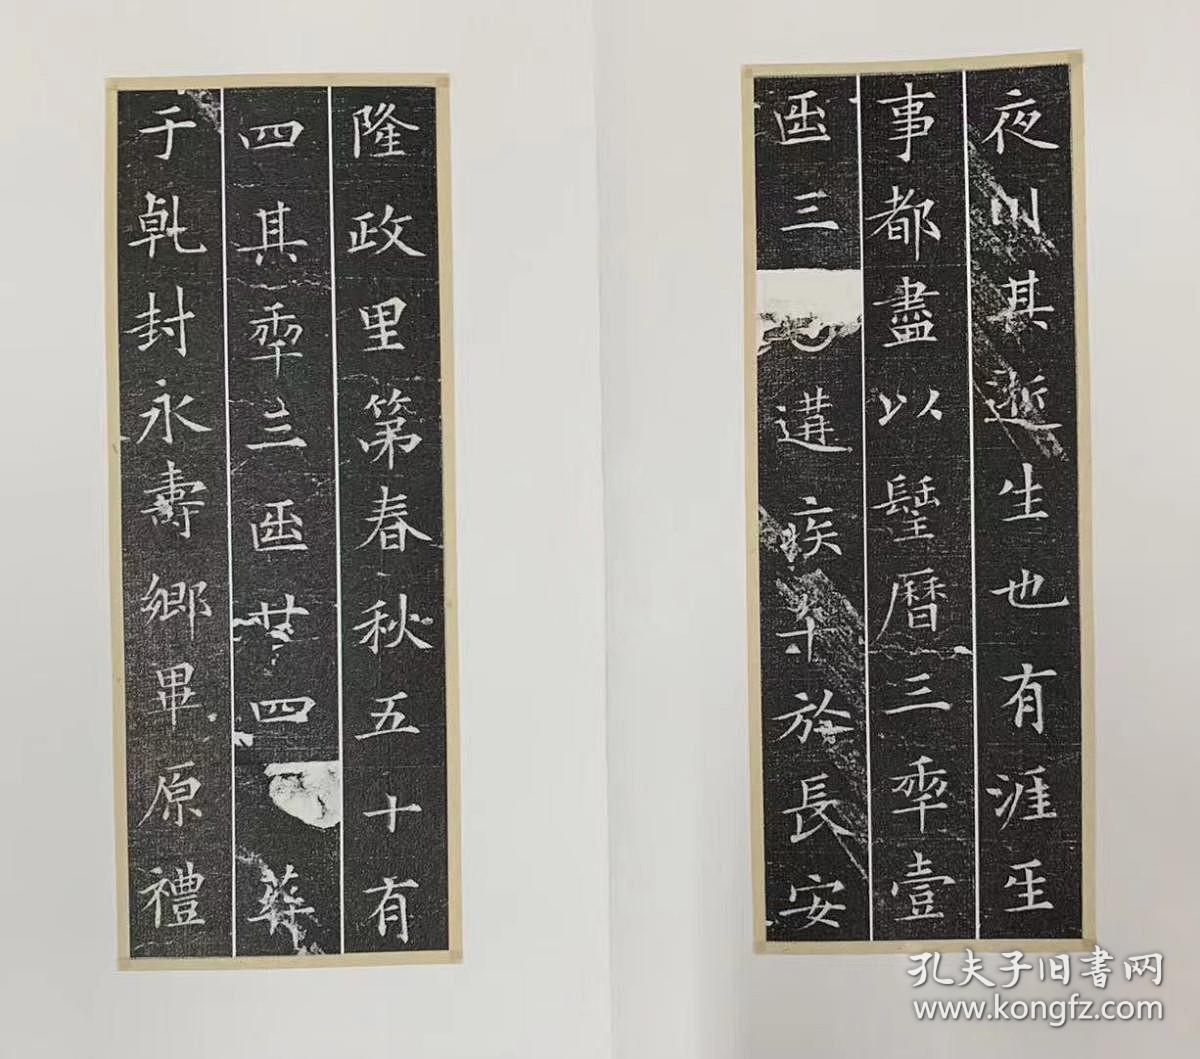 夜川其逝生也有涯𤯔
事都盡以𨲢曆三𠦚壹
𠥱三遘疾卒於長安
隆政里第春秋五十有
四其𠦚三𠥱廿四葬
于乹封永壽鄉畢原禮
孔夫子旧書网
www.kongfz.com